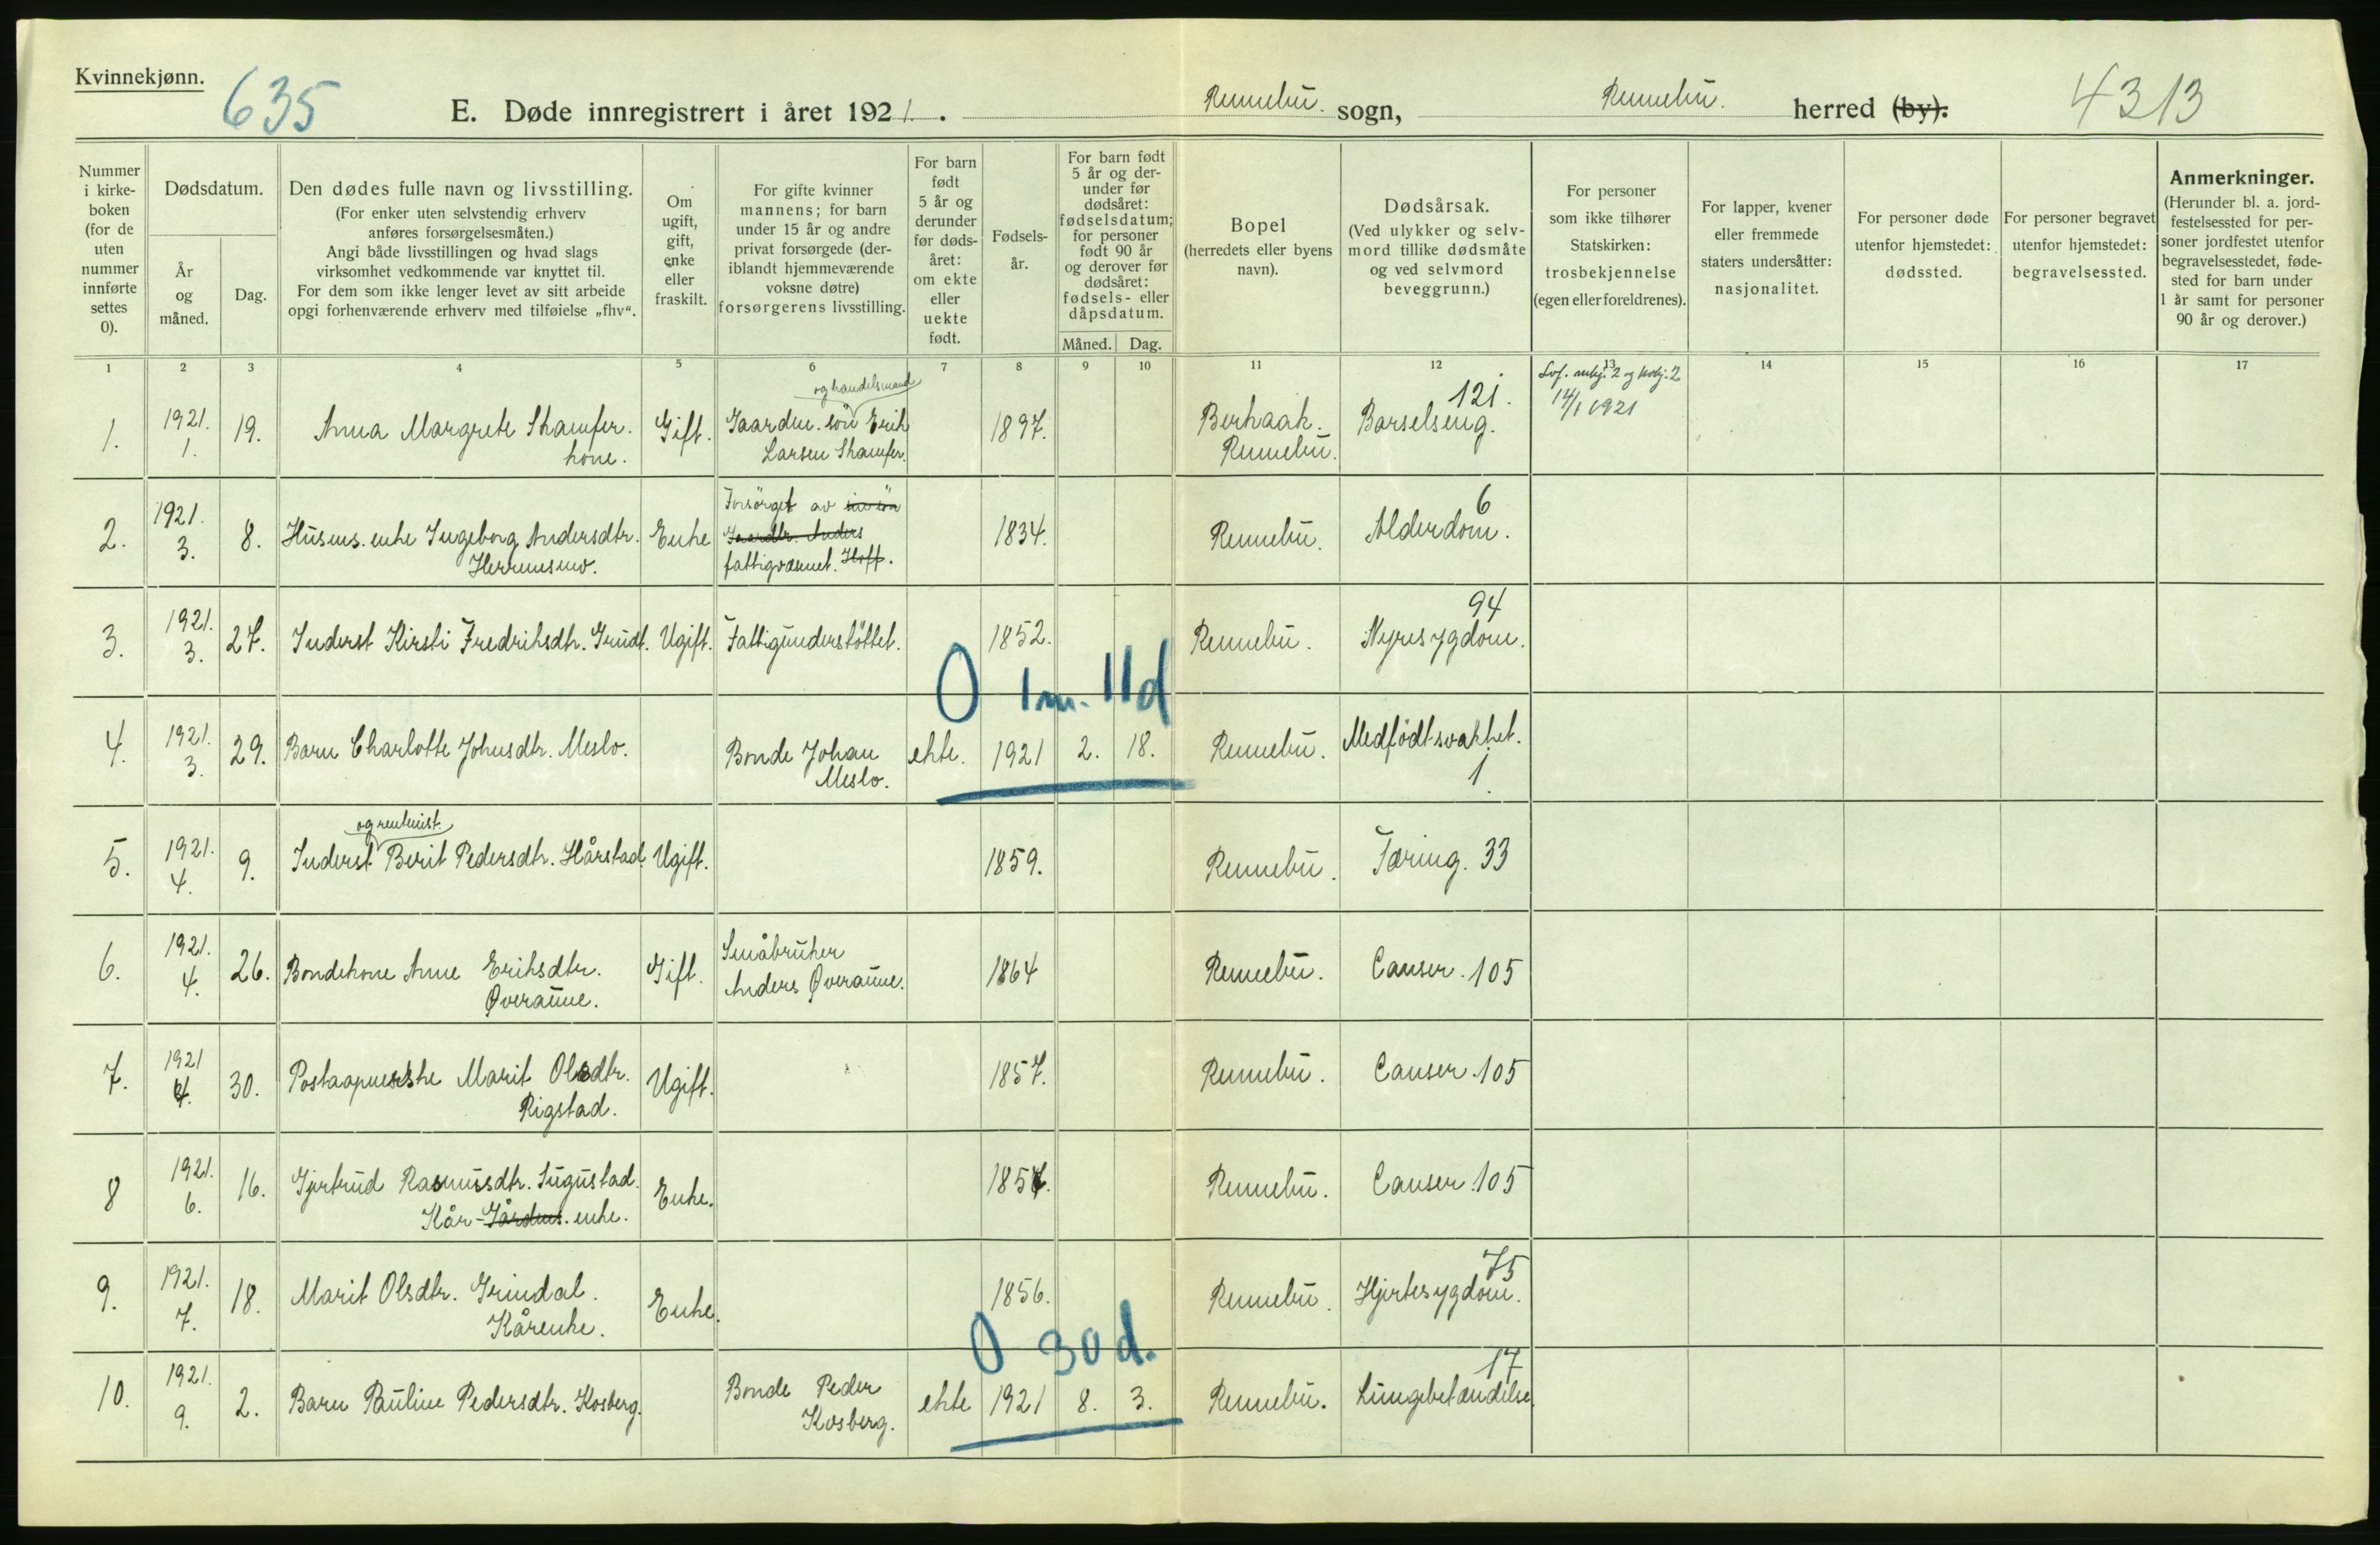 Kvinnekjønn.
635
E. Døde innregistrert i året 1921. Rennebu. sogn, Rennebu. herred (by).
4313
Nummer i kirke- boken (for de uten nummer innførte settes 0).
Dødsdatum.
År og måned.
Dag.
Den dødes fulle navn og livsstilling.
(For enker uten selvstendig erhverv
anføres forsørgelsesmåten.)
Angi både livsstillingen og hvad slags
virksomhet vedkommende var knyttet til.
For dem som ikke lenger levet av sitt arbeide
opgi forhenværende erhverv med tilføielse „fhv“.
Om ugift, gift, enke eller fraskilt.
For gifte kvinner
mannens; for barn
under 15 år og andre
privat forsørgede (der-
iblandt hjemmeværende
voksne døtre)
forsørgerens livsstilling.
For barn født 5 år og derunder før døds- året: om ekte eller uekte født.
Fødsels- år.
For barn født
5 år og der-
under før
dødsåret:
fødselsdatum;
for personer
født 90 år
og derover før
dødsåret:
fødsels- eller
dåpsdatum.
Måned. Dag.
Bopel
(herredets eller byens
navn).
Dødsårsak.
(Ved ulykker og selv-
mord tillike dødsmåte
og ved selvmord
beveggrunn.)
For personer
som ikke tilhører
Statskirken:
trosbekjennelse
(egen eller foreldrenes).
For lapper, kvener
eller fremmede
staters undersåtter:
nasjonalitet.
For personer døde
utenfor hjemstedet:
dødssted.
For personer begravet
utenfor hjemstedet:
begravelsessted.
Anmerkninger.
(Herunder bl. a. jord-
festelsessted for per-
soner jordfestet utenfor
begravelsesstedet, føde-
sted for barn under
1 år samt for personer
90 år og derover.)
1 2 3 4 5 6 7 8 9 10 11 12 13 14 15 16 17
1. 1921. 1. 19. Anna Margrete Skamfer. kone. Gift. Gaardm. sön og handelsmand Erik Larsen Skamfer. 1897. Berkaak. Rennebu. 121. Barselseng.
14/1 1921
2. 1921. 3. 8. Husms. enke Ingeborg Andersdtr. Enke Forsörget av fattigvæsenet. Gaardbr. Anders Hoff. 1834. Rennebu. 6 Alderdom.
3. 1921. 3. 27. Inderst Kirsti Fredriksdtr. Grindt. Ugift. Fattigunderstöttet. 1852. Rennebu. 94 Nyresygdom.
0 1m. 11d
4. 1921. 3. 29. Barn Charlotte Johnsdtr. Meslo. Bonde Johan Meslo. ekte. 1921 2. 18. Rennebu. Medfödt svakhet. 1
5. 1921. 4. 9. Inderst og rentenist. Berit Pedersdtr. Hårstad. Ugift. 1859. Rennebu. Tæring. 33
6. 1921. 4. 26. Bondekone Anne Eriksdtr. Øveraune. Gift. Småbruker Anders Øveraune. 1864 Rennebu. Canser. 105
7. 1921 4. 30. Postaapnerske Marit Olsdtr. Rigstad. Ugift. 1857. Rennebu. Canser. 105
8 1921. 6. 16. Gjertrud Rasmusdtr. Kår-Gårdms. enke. Enke. Rennebu. Canser. 105
9. 1921. 7. 18. Marit Olsdtr. Grindal. Kårenke. Enke. 1856. Rennebu. 75 Hjertesygdom.
0 30d.
10. 1921. 9. 2. Barn Pauline Pedersdtr. Kosberg. Bonde Peder Kosberg. ekte 1921 8. 3. Rennebu. 17 Lungebetændelse